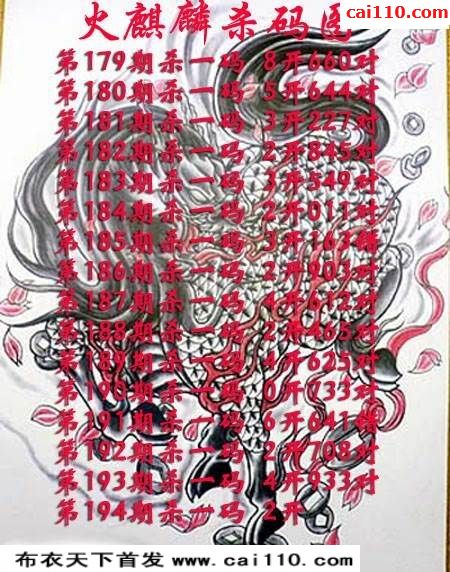 cai110.com
火麒麟杀码图
第179期杀一码 8开660对
第180期杀一码 5开644对
第181期杀一码 3开227对
第182期杀一码 2开845对
第183期杀一码 3开549对
第184期杀一码 2开011对
第185期杀一码 3开163错
第186期杀一码 2开903对
第187期杀一码 4开612对
第188期杀一码 2开465对
第189期杀一码 4开625对
第190期杀一码 0开733对
第191期杀一码 6开641错
第192期杀一码 2开708对
第193期杀一码 4开933对
第194期杀一码 2开
布衣天下首发 www.cai110.com